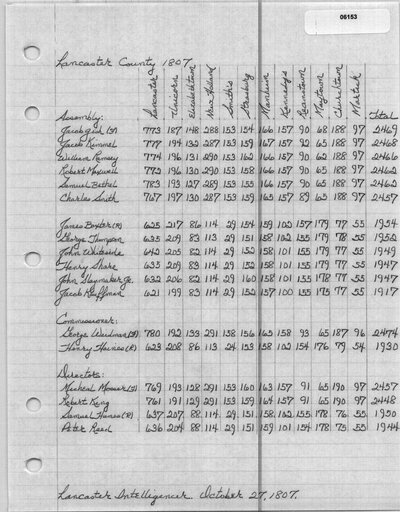 06153
Lancaster County 1807.
Lancaster Unicorn Elizabethtown New Holland Smith's Strasburg Manheim Kennedy's Reamstown Maytown Churchtown Martick
Assembly: Total
Jacob Gish (F) 773 187 148 288 153 154 166 157 90 68 188 97 2469
Jacob Kimmel 777 194 132 287 153 159 167 157 92 65 188 97 2468
William Ramsey 774 196 131 290 153 162 166 157 90 62 188 96 2466
Robert Maxwell 772 196 130 290 153 158 166 157 90 65 188 96 2462
Samuel Bethel 783 193 127 289 153 155 166 157 90 65 188 96 2462
Charles Smith 767 197 130 287 153 159 165 157 89 65 188 97 2457
James Boxter (R) 625 217 86 114 29 154 159 102 157 179 77 55 1954
George Thompson 633 209 83 113 29 151 158 102 155 179 78 55 1952
John Whiteside 642 205 82 114 29 152 158 101 155 179 77 55 1949
Henry Share 633 209 83 114 29 152 158 101 155 179 77 55 1947
John Haymaker Jr. 632 206 82 114 29 160 158 101 155 178 77 55 1947
Jacob Kauffman 621 199 83 114 29 152 157 100 155 175 77 55 1917
Commissioner:
George Weidman (F) 780 192 133 291 158 156 163 158 93 65 187 96 2474
Henry Haines (R) 623 208 86 113 24 153 158 102 154 176 79 54 1930
Directors:
Michael Mosser (F) 769 193 128 291 153 160 163 157 91 65 190 97 2457
Robert King 761 191 129 291 153 159 164 157 91 65 190 97 2448
Samuel Haines (R) 637 207 88 114 29 151 158 102 155 178 76 55 1950
Peter Reed 636 204 88 114 29 151 159 101 154 178 75 55 1944
Lancaster Intelligencer. October 27, 1807.